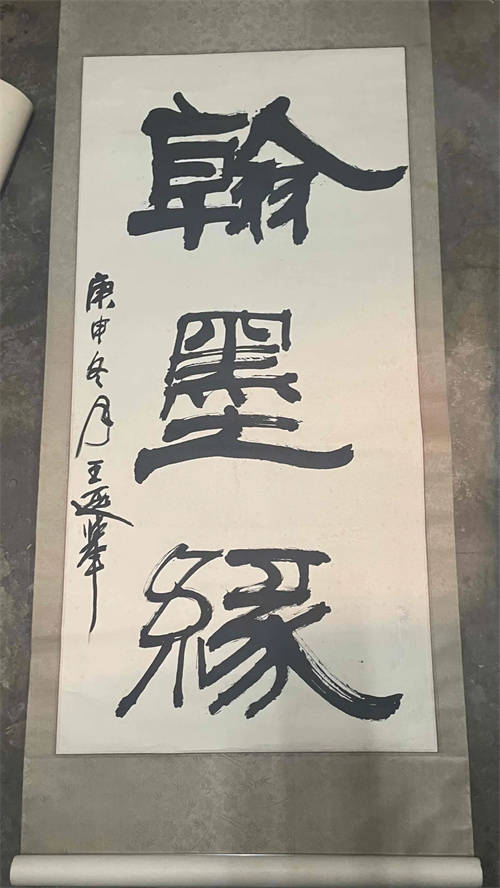 翰墨缘
庚申冬月王遐举